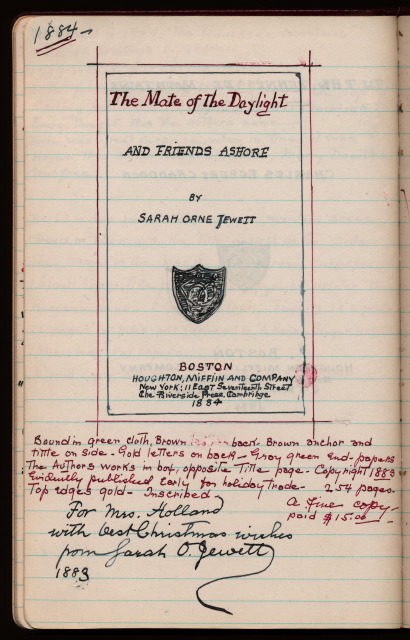 1884-
The Mate of the Daylight
AND FRIENDS ASHORE
BY
SARAH ORNE JEWETT
BOSTON
HOUGHTON, MIFFLIN AND COMPANY
New York: 11 East Seventeenth Street
The Riverside Press, Cambridge
1884
Bound in green cloth, Brown back - Brown anchor and
title on side - Gold letters on back - Gray green End-papers
The Authors works in box, opposite Title page - Copyright 1883
Evidently published early for holiday trade - 254 pages-
Top edges gold - Inscribed
A fine copy-
paid $15.00
For Mrs. Holland
with best Christmas wishes
from Sarah O. Jewett
1883